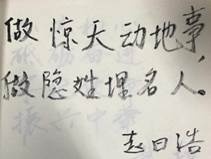 做惊天动地事,
做隐姓埋名人.
志日浩